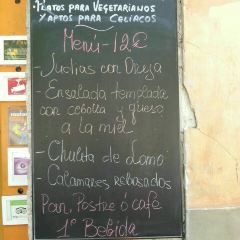 PLATOS PARA VEGETARIANOS
Y APTOS PARA CELIACOS
Menú-12€
-Judias con Oreja
-Ensalada templada
con cebolla y queso
a la miel
-Chuleta de Lomo
-Calamares rebosados
Pan, Postre ó café
1ª Bebida